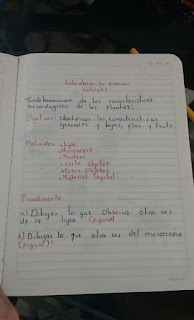 Laboratorio de ciencias
naturales
Determinacion de las caracteristicas
morfologicas de las plantas.
Objetivo: Identificar las caracteristicas
generales y hojas, flor y fruto
Materiales • Lupa
• Microscopio
• Muestra
• Porta objetos
• Cubre objetos
• Material Vegetal
Procedimiento
a) Dibujar lo que observa atra vez
de la lupa (figura)
b) Dibujar lo que atra vez del microscopio
(figura)